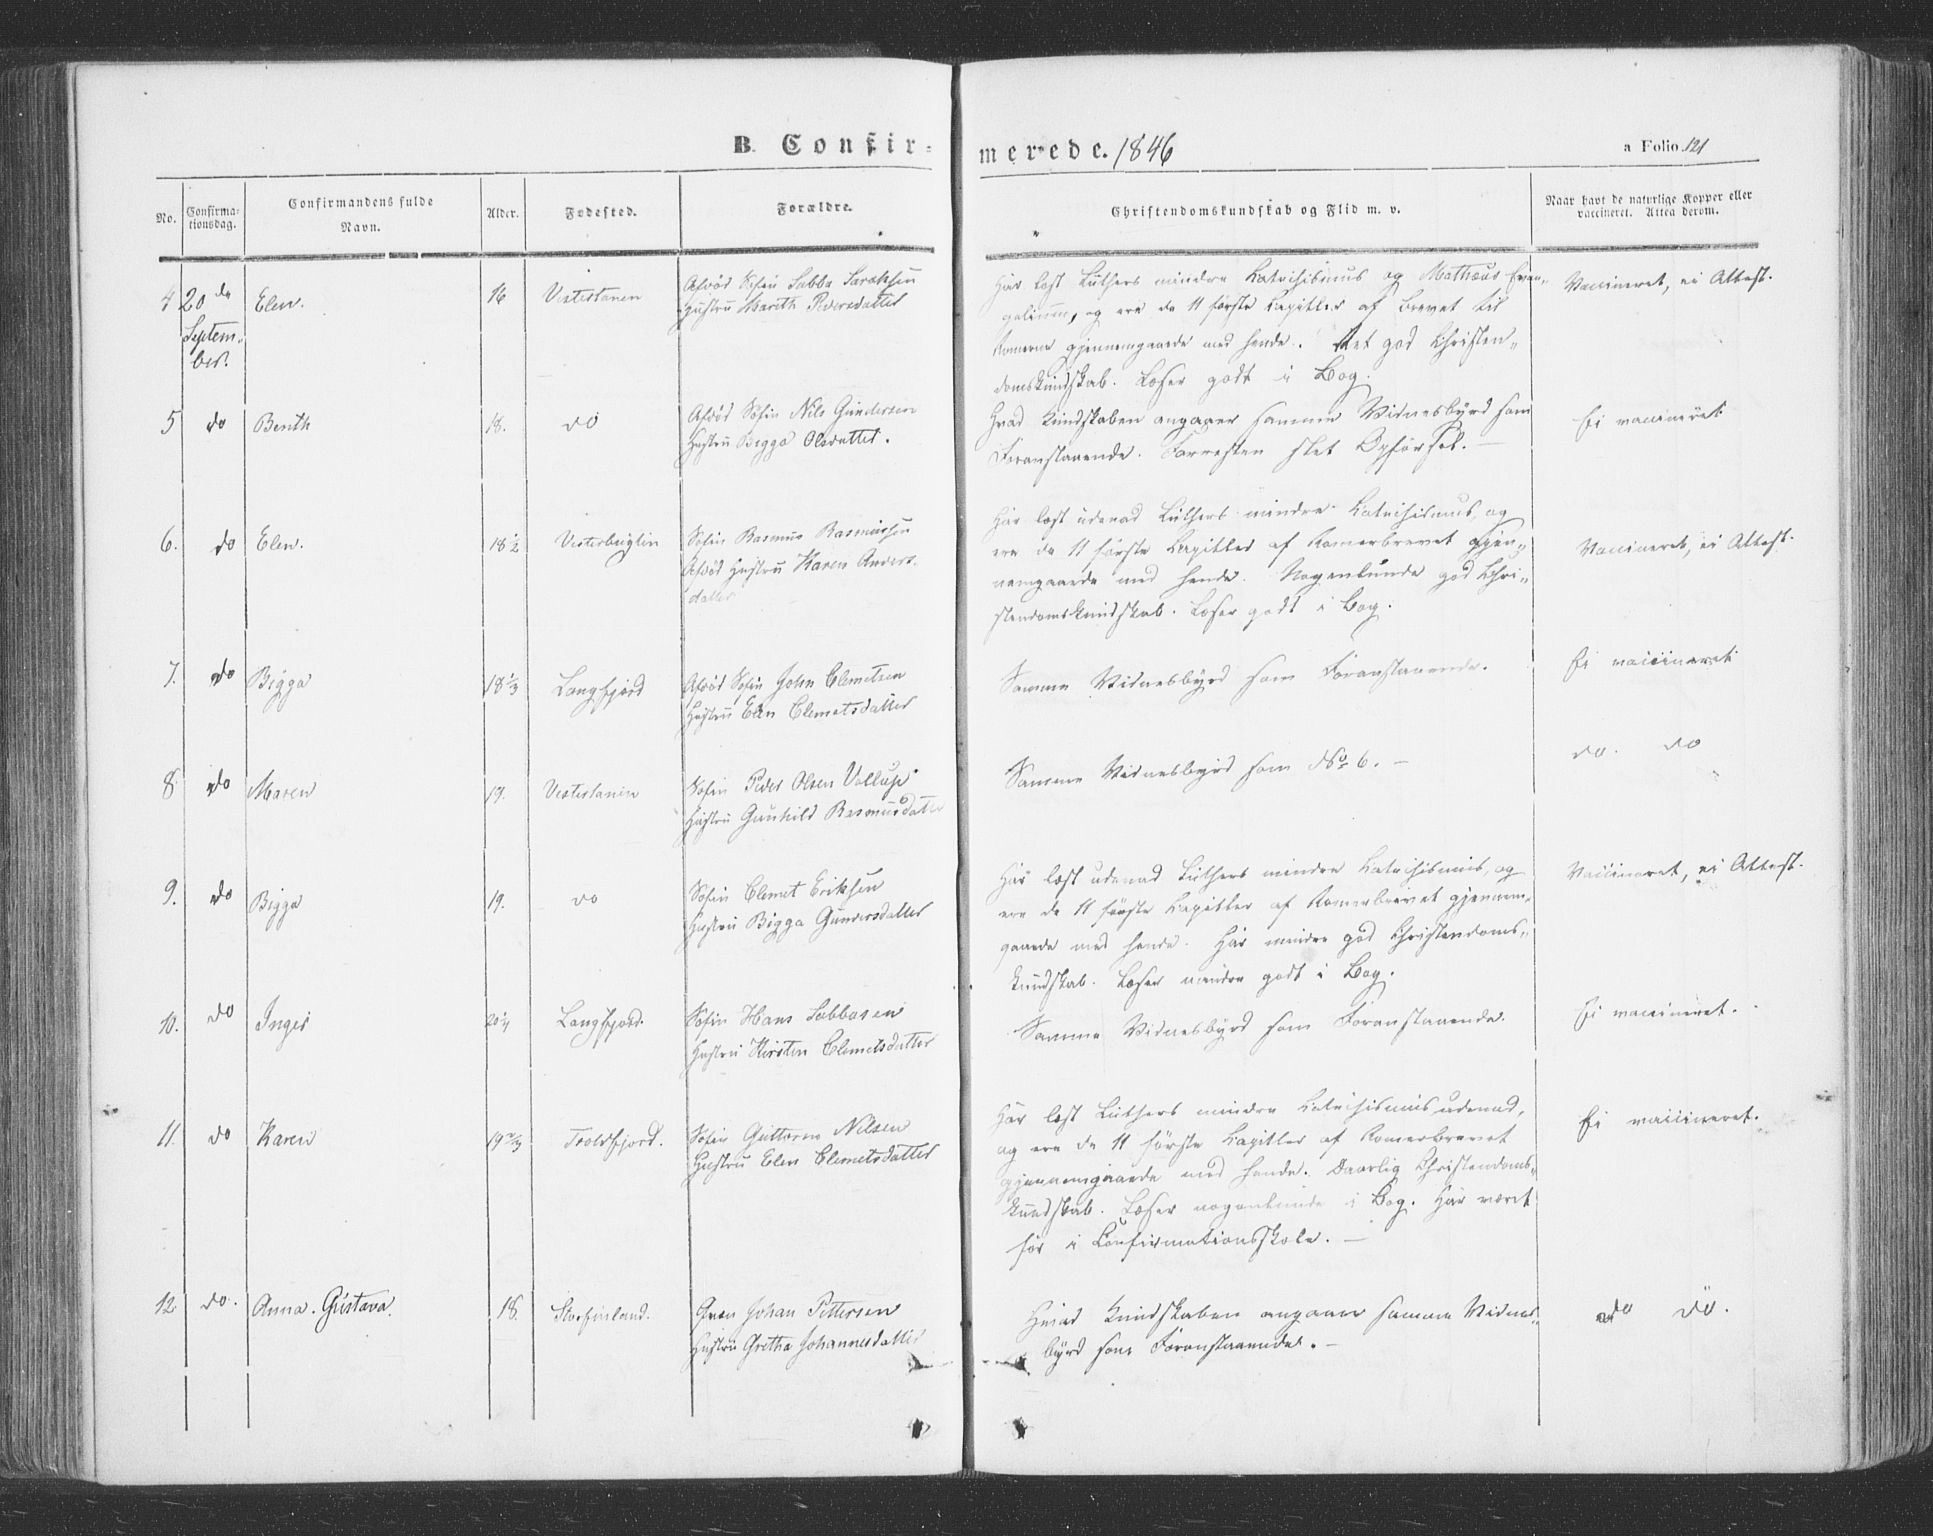 B. Confir-
merede. 1846
a Folio 121
No.
Confirma-
tionsdag.
Confirmandens fulde
Navn.
Alder.
Fødested.
Forældre.
Christendomskundskab og Flid m. v.
Naar havt de naturlige Kopper eller
vaccineret. Attea derom.
4 20de Elen. 16 Vestertanen
Septem-
ber.
Afdød Søfin Sabba Saraksen
Hustru Marith Pedersdatter
Har læst Luthers mindre Katechismus og Mathæus Evan-
gelium, og ere de 11 første Capitler af Brevet til
Romerne gjennemgaaede med hende. Ret god Christen-
domskundskab. Læser godt i Bog.
Vaccineret, ei Attest.
5 do Benth 18. do
Afdød Søfin Nils Gundersen
Hustru Bigga Olsdatter.
Hvad Kundskaben angaaer samme Vidnesbyrd som
Foranstaaende. Forresten slet Opførsel. —
Ei vaccineret
6. do Elen. 18½
Søfin Rasmus Rasmussen
Afdød Hustru Karen Anders-
datter
Har læst udenad Luthers mindre Katechismus, og
ere de 11 første Capitler af Romerbrevet gjen-
nemgaaede med hende. Nogenlunde god Chri-
stendomskundskab. Læser godt i Bog.
Vaccineret, ei Attest.
7. do Bigga 18⅓ Langfjord
Afdød Søfin John Clemetsen
Hustru Elen Clemetsdatter
Samme Vidnesbyrd som Foranstaaende.
Ei vaccineret
8. do Maren 17. Vestertanen
Søfin Peder Olsen
Hustru Gunhild Rasmusdatter
Samme Vidnesbyrd som No 6. —
do. do
9. do Bigga 19. do
Søfin Clemet Eriksen
Hustru Bigga Gundersdatter
Har læst udenad Luthers mindre Katechismus, og
ere de 11 første Capitler af Romerbrevet gjennem-
gaaede med hende. Har mindre god Christendoms-
kundskab. Læser mindre godt i Bog.
Vaccineret, ei Attest.
10. do Inger Langfjord.
Søfin Hans Sabbasen
Hustru Kirsten Clemetsdatter
Samme Vidnesbyrd som Foranstaaende.
Ei vaccineret.
11. do Karen 19⅔ Troldfjord.
Søfin Guttorm Nilsen
Hustru Elen Clemetsdatter
Har læst Luthers mindre Katechismus udenad,
og ere de 11 første Capitler af Romerbrevet
gjennemgaaede med hende. Daarlig Christendoms-
kundskab. Læser nogenlunde i Bog. Har været
før i Confirmationsskole. —
Ei vaccineret.
12. do. Anna Gustava. 18. Storfinland.
Qvæn Johan Pettersen
Hustru Gretha Johannesdatter
Hvad Kundskaben angaaer samme Vidnes-
byrd som Foranstaaende. —
do do.